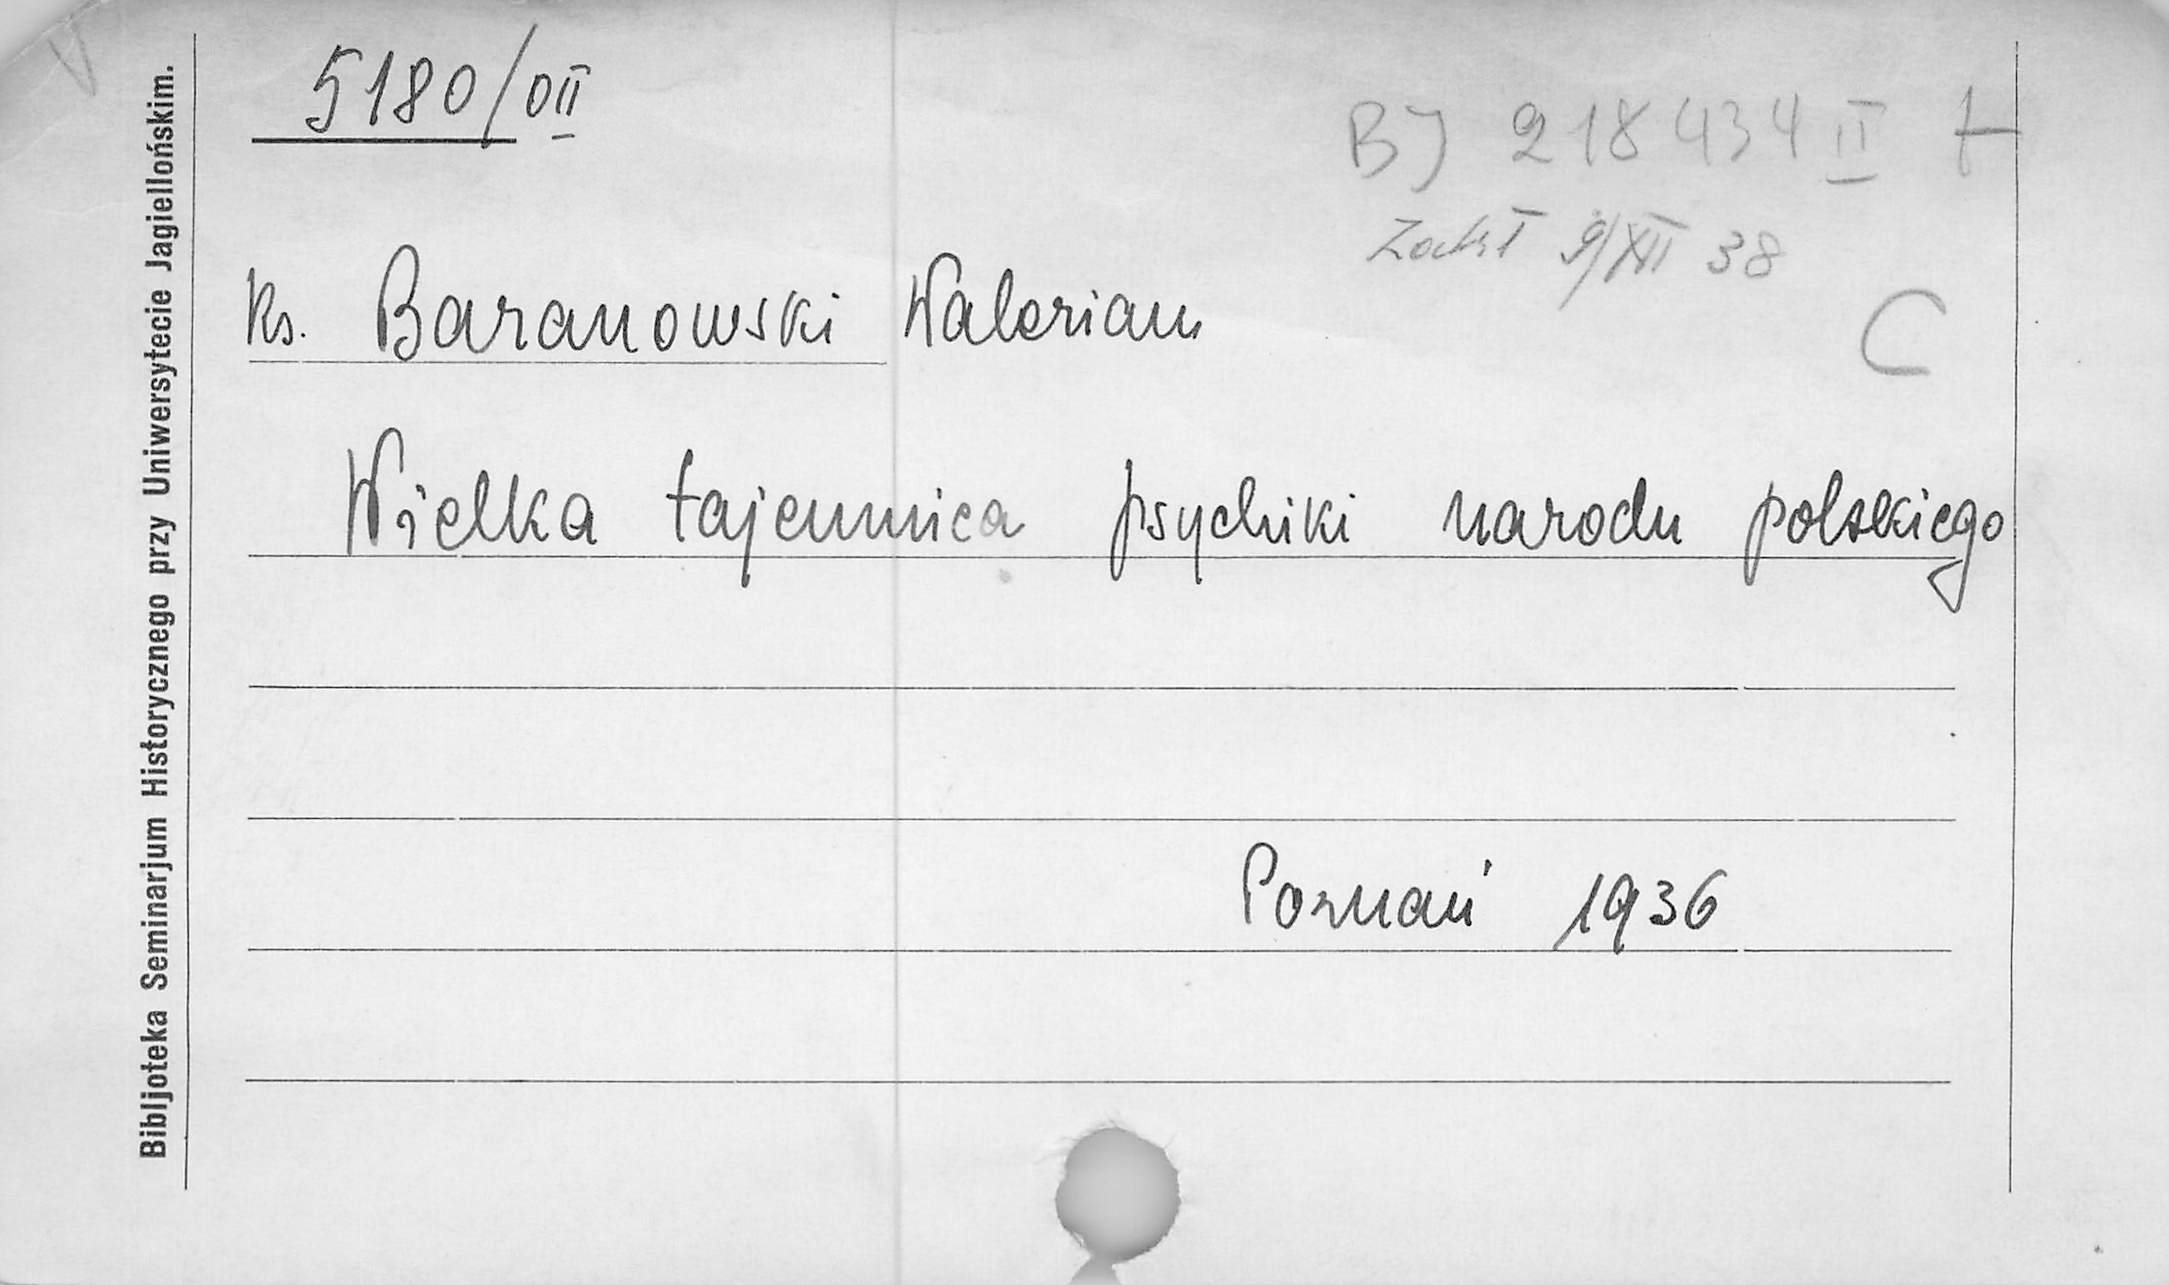 5180/0II
BJ 218434 II +
9/XII 38
Ks. Baranowski Walerian
C
Wielka tajemnica psychiki narodu polskiego
Poznań 1936
Bibljoteka Seminarjum Historycznego przy Uniwersytecie Jagiellońskim.